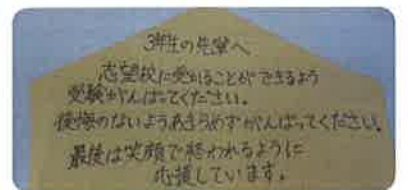 3年生の先輩へ
志望校に受かることができるよう
受験がんばってください。
後悔のないようあきらめずがんばってください。
最後は笑顔で終われるように
応援しています。